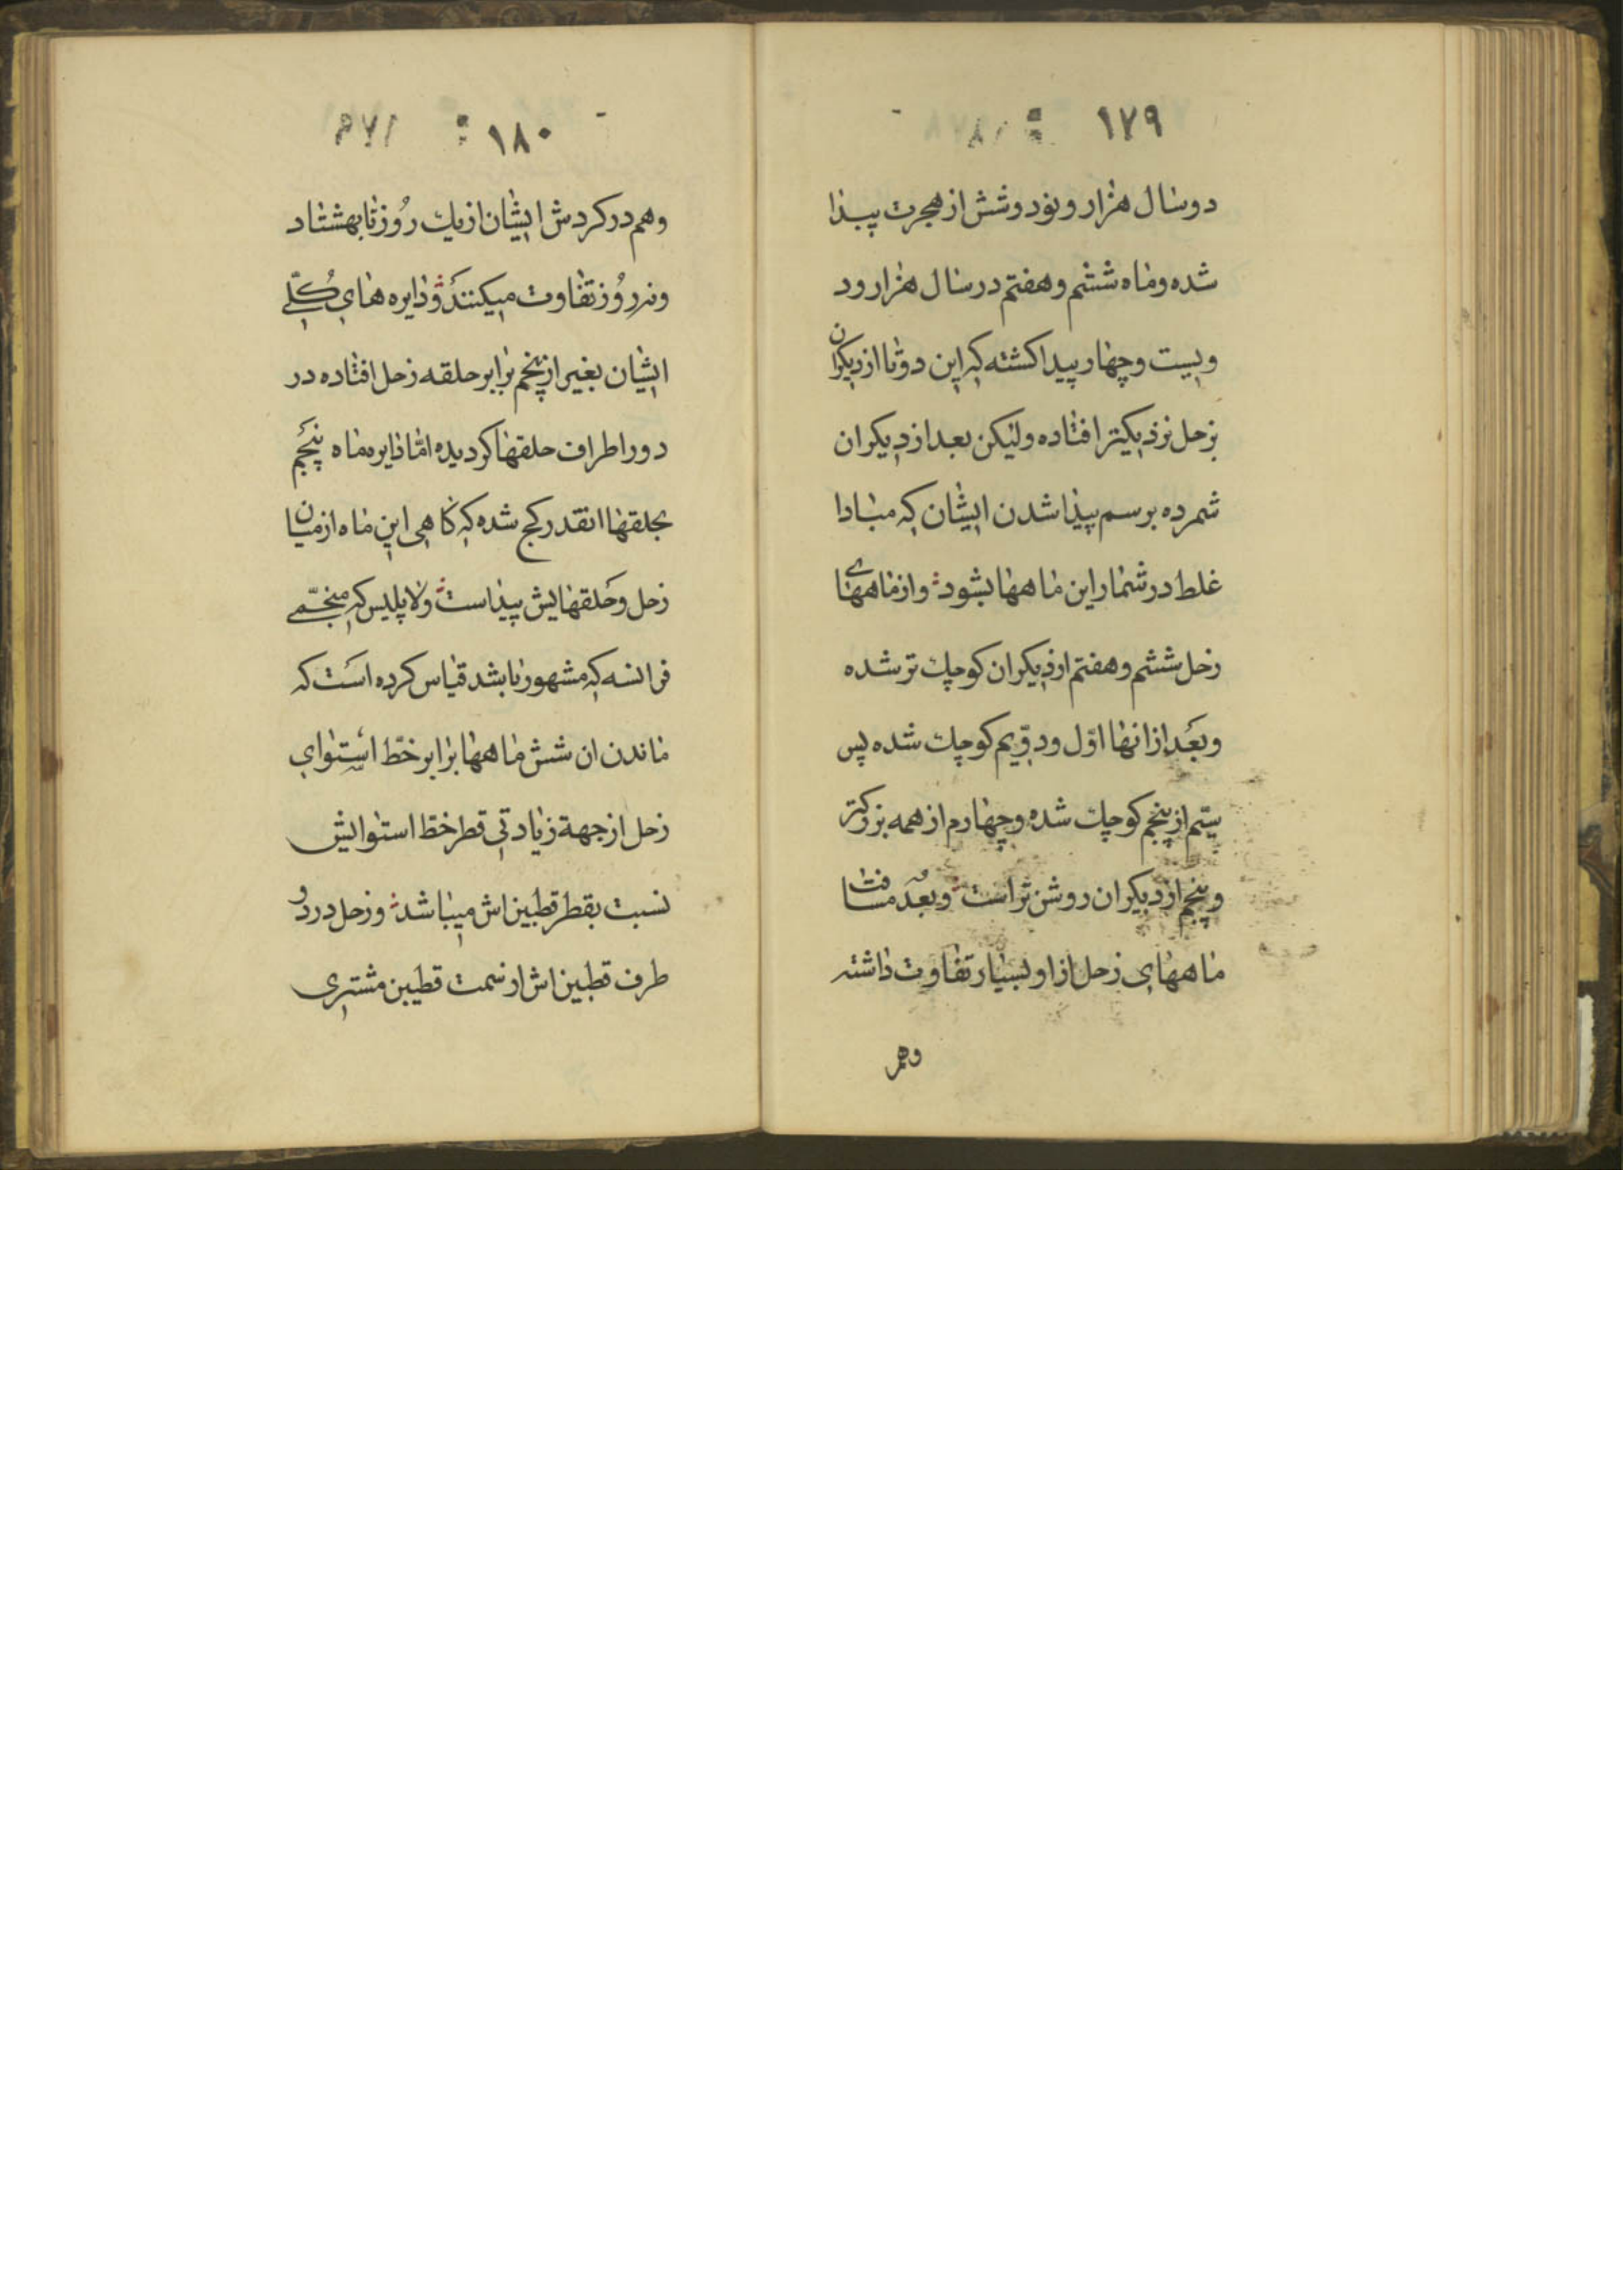 ١٧٩
دوسال هزار و نود و شش از هجرت پیدا
شده و ماه ششم و هفتم در سال هزار و د
ویست و چهار پیدا کشته که این دوتا از دیکران
بزحل نزدیکتر افتاده ولیکن بعد از دیکران
شمرده برسم پیدا شدن ایشان که مبادا
غلط در شمار این ماهها بشود و از ماههای
زحل ششم و هفتم از دیکران کوچك تر شده
و بعد از انها اوّل و دویّم کوچك شده پس
سیّم از پنجم کوچك شده و چهارم از همه بزرکتر
و پنجم از دیکران روشن تر است و بعد مسافت
ماههای زحل از او بسیار تفاوت داشته
وهم
١٨٠
وهم در کردش ایشان از یك روز تا بهشتاد
ونه روز تفاوت میکنند و دایره های کلّی
ایشان بغیر از پنجم برابر حلقه زحل افتاده در
دور اطراف حلقها کردیده امّا دایره ماه پنجم
بحلقها انقدر کج شده که کاهی این ماه از میان
زحل و حلقهایش پیداست و لاپلیس که منجّمی
فرانسه که مشهور باشد قیاس کرده است که
ماندن ان شش ماهها برابر خطّ استوای
زحل از جهة زیادتی قطر خطّ استوایش
نسبت بقطر قطبین اش میباشد و زحل در دو
طرف قطبین اش از سمت قطبین مشتری